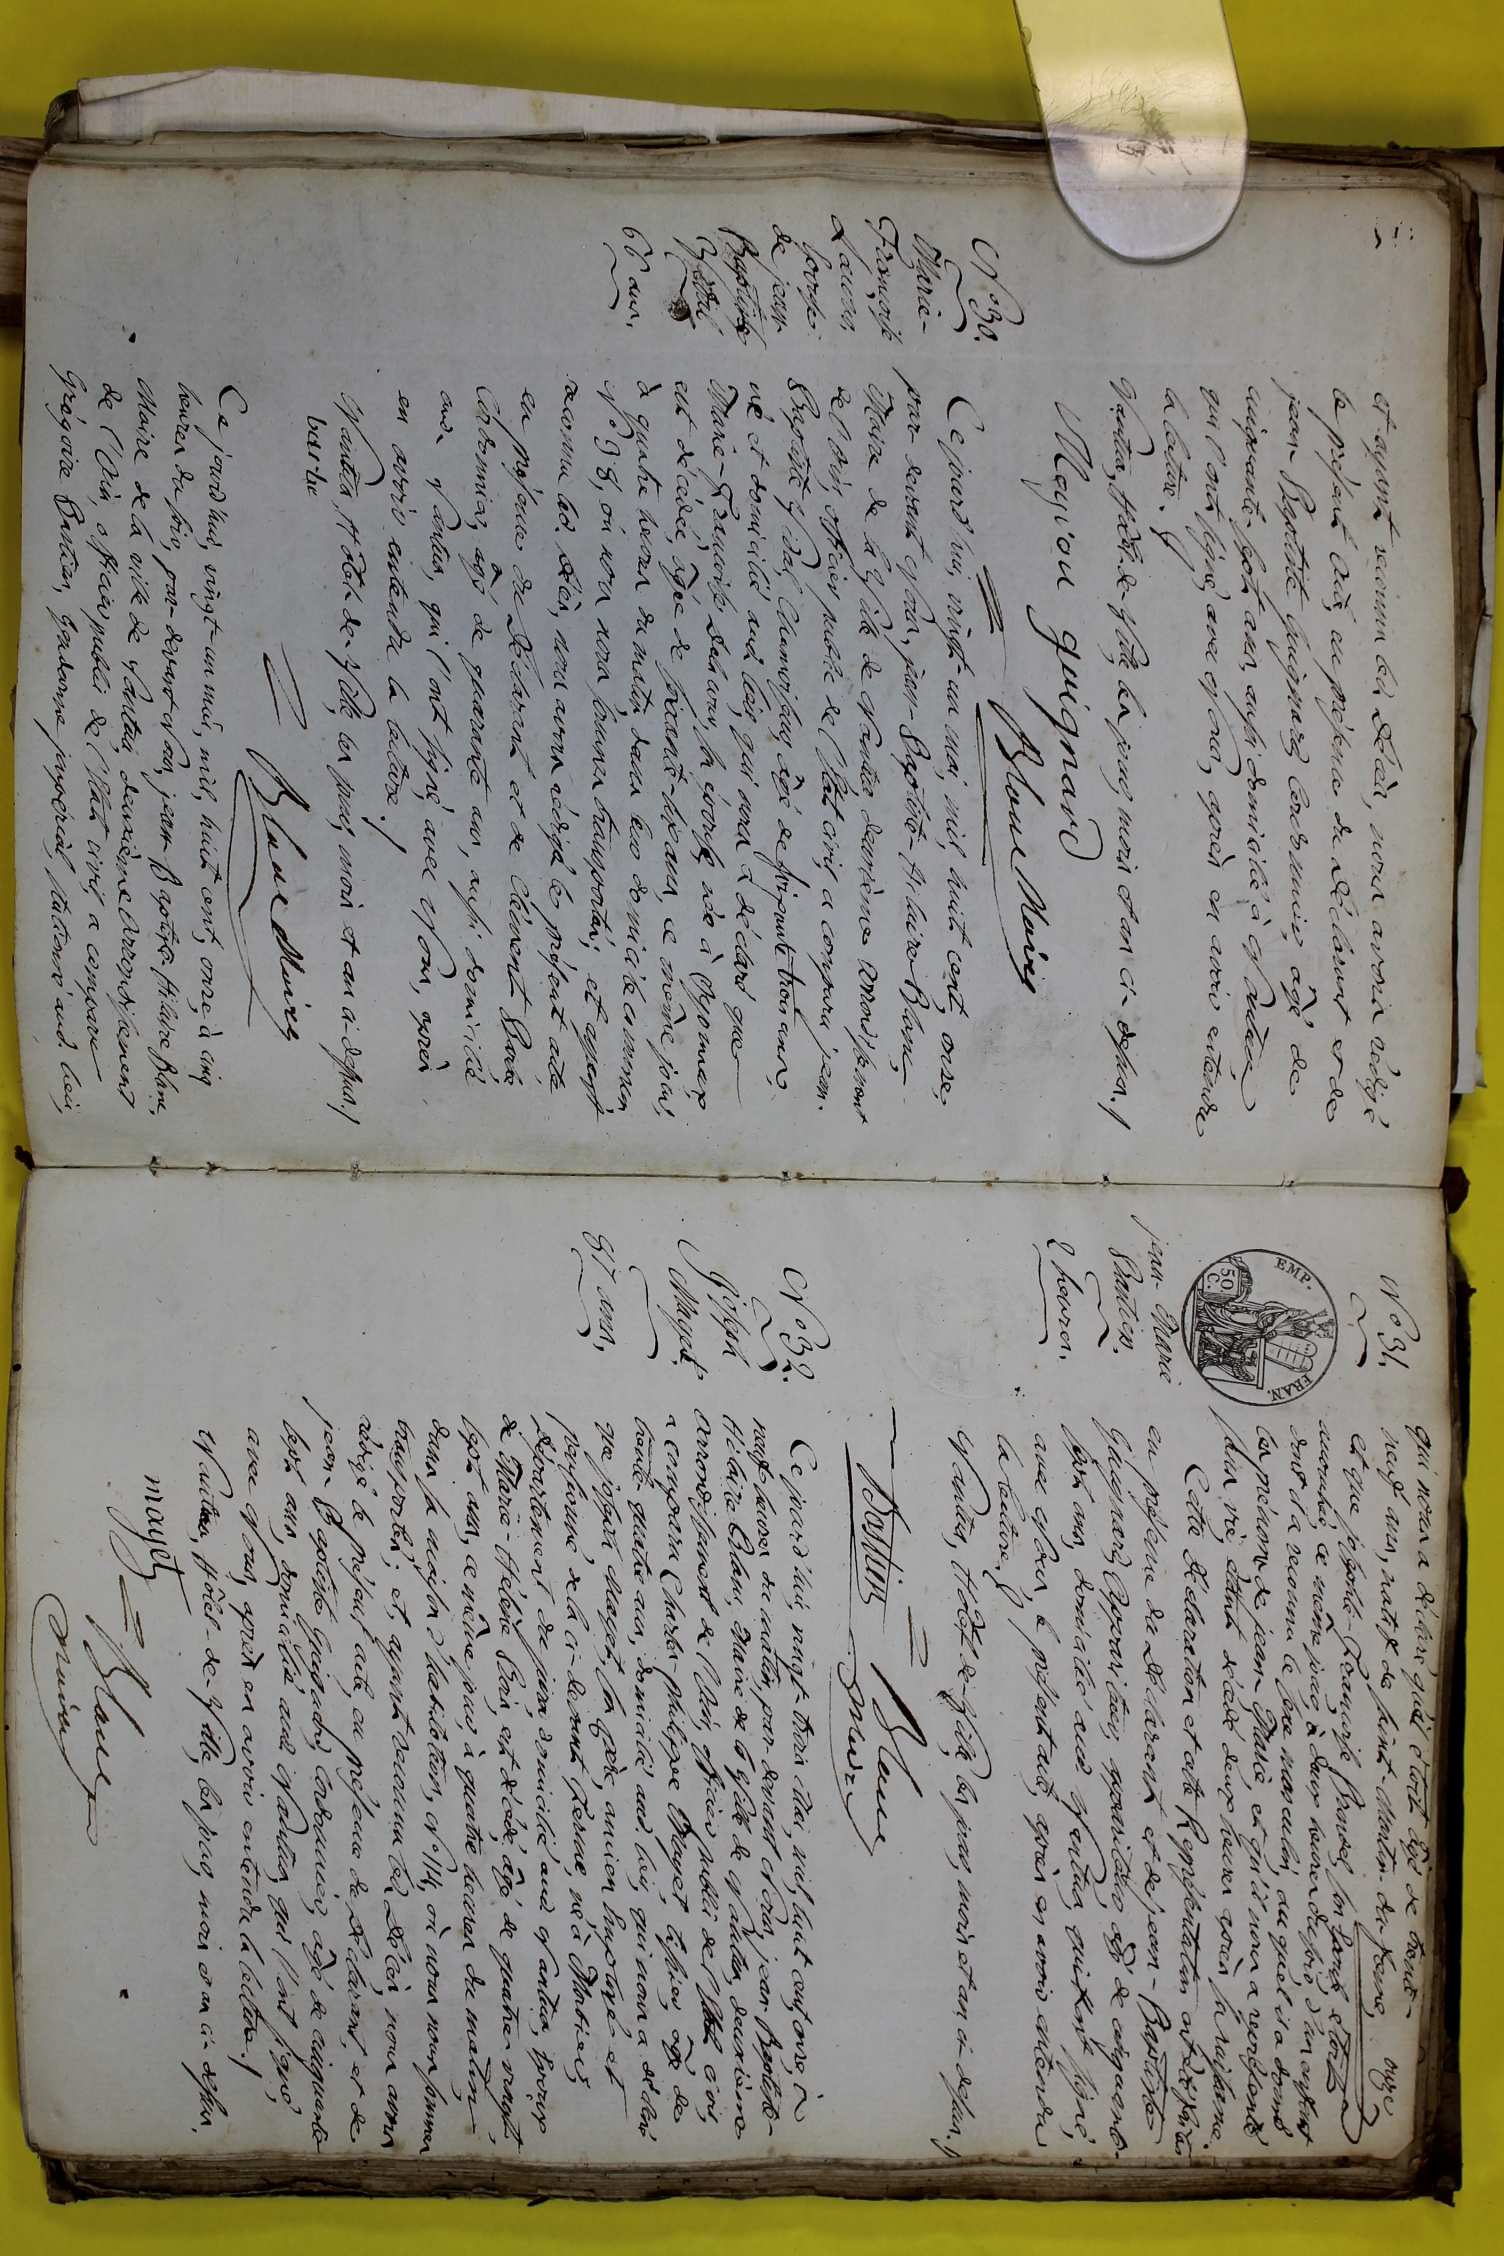 et ayant reconnu led. Décès, nous avons rédigé
le présent acte, en présence du Déclarant et de
jean Baptiste Guignard Cordonnier, agé de
cinquante-sept ans, aussi domicilié à Nantua,
qui l'ont signé, avec Nous, après en avoir entendu
la lecture.
Nantua, Hôtel de Ville, les jour, mois et an ci-dessus./
guignard
Blanc Maire
N° 30.
Marie-
Françoise
Delavau
épouse
de jean
Baptiste
Vidal
66 ans.
Ce jourd'hui, vingt un mai, mil, huit cent, onze,
par-devant Nous, jean-Baptiste-Hilaire Blanc,
Maire de la Ville de Nantua, deuxième arrondissement
de l'Ain, officier public de l'état civil, a comparu jean-
Baptiste Vidal, agé de soixante trois ans,
né et domicilié aud. lieu, qui nous a déclaré que
Marie-Françoise Delavau, son épouse, née à Oyonnax,
est décédée, agée de soixante-six ans, ce même jour,
à quatre heures du matin, dans leur domicile commun
N° 38, où nous nous sommes transportés; et ayant
reconnu led. Décès, nous avons rédigé le présent acte
en présence du Déclarant et de Clément Barbe
Cordonnier, agé de quarante ans, aussi domicilié
aud. Nantua, qui l'ont signé, avec Nous, après
en avoir entendu la lecture./
Nantua, Hôtel de Ville, les jour, mois et an ci-dessus./
barbe
Blanc Maire
Ce jourd'hui, vingt-un mai, mil, huit cent, onze, à cinq
heures du soir, par-devant Nous, jean Baptiste Hilaire Blanc,
Maire de la ville de Nantua, deuxième Arrondissement
de l'Ain, officier public de l'état civil, a comparu
Grégoire Bastien, gendarme impérial, stationné aud. lieu,
N° 31.
EMP. FRAN.
50 C.
jean-Marie
Bastien.
2 heures.
qui nous a déclaré, qu'il étoit agé de trente-
neuf ans, natif de Saint-Martin-du-
et que josephte-Françoise son épouse
accouchée, ce même jour, à deux heures du soir, d'un enfant
dont il a reconnu le sexe masculin, au quel il a donné
les prénoms de jean Marie, et qu'il nous a représenté
sans vie, étant décédé deux heures après sa naissance.
Cette Déclaration et cette Représentation ont été faites
en présence du Déclarant et de jean-Baptiste
Guignard, agé de cinquante-
sept ans, domicilié aud. Nantua, qui ont signé,
avec Nous, le présent acte, après en avoir entendu
la lecture./
Nantua, Hôtel-de-Ville, les jour, mois et an ci-dessus./
Bastien
Blanc
Maire
N° 32.
Joseph
Mayet.
87 ans.
Ce jourd'hui, vingt-trois Mai, mil, huit cent, onze, à
neuf heures du matin, par-devant Nous, jean Baptiste-
Hilaire Blanc, Maire de la Ville de Nantua, deuxième
arrondissement de l'Ain, officier public de l'état civil,
a comparu Charles-Philippe Mayet, agé de
trente-quatre ans, domicilié aud. lieu, qui nous a déclaré
que joseph Mayet, son père, ancien Employé et
pensionné de la ci-devant Ferme, né à
Département du jura, domicilié aud. Nantua, époux
de Marie-Hélène est décédé, agé de quatre-vingt
sept ans, ce même jour, à quatre heures du matin,
dans sa maison d'habitation, N° 114, où nous nous sommes
transportés; et, ayant reconnu led. Décès, nous avons
rédigé le présent acte, en présence du Déclarant, et de
jean Baptiste Guignard, Cordonnier, agé de cinquante
sept ans, domicilié aud. Nantua, qui l'ont signé,
avec Nous, après en avoir entendu la lecture./
Nantua, Hôtel-de-Ville, les jour, mois et an ci-dessus.
mayet
Blanc
Maire